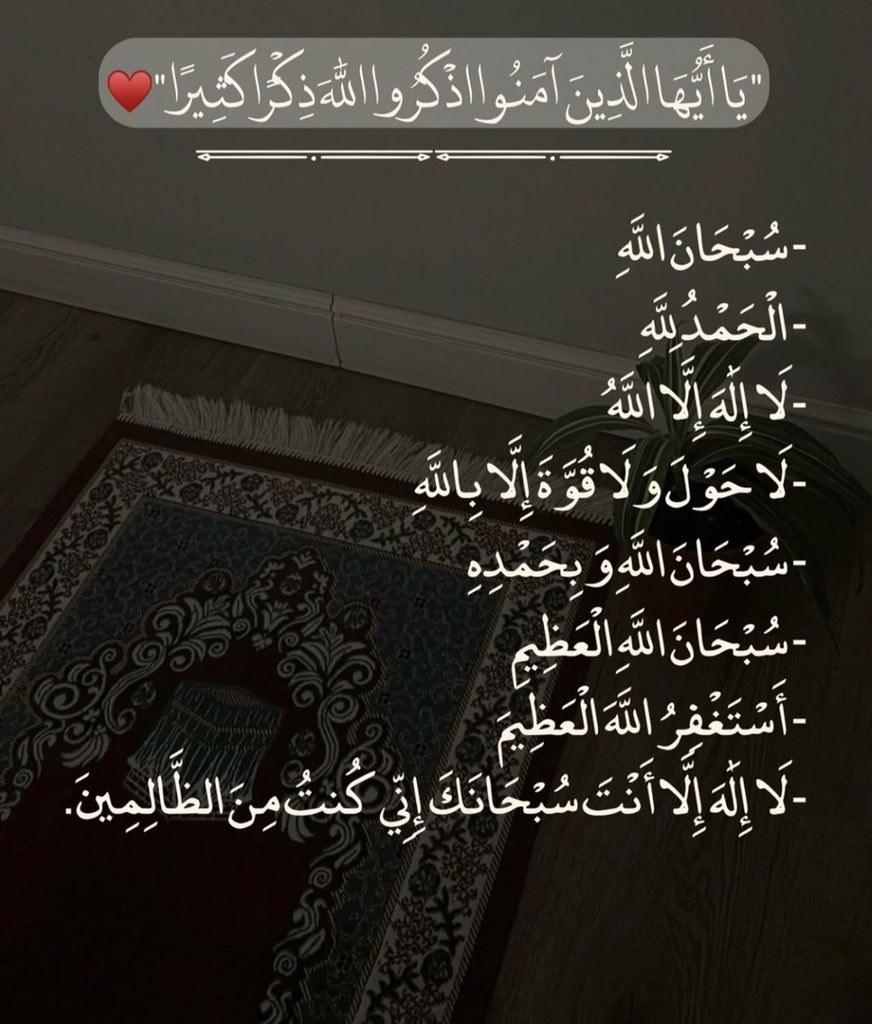 "يَا أَيُّهَا الَّذِينَ آمَنُوا اذْكُرُوا اللَّهَ ذِكْرًا كَثِيرًا"♥️
-سُبْحَانَ اللَّهِ
-الْحَمْدُ لِلَّهِ
-لَا إِلَٰهَ إِلَّا اللَّهُ
-لَا حَوْلَ وَ لَا قُوَّةَ إِلَّا بِاللَّهِ
-سُبْحَانَ اللَّهِ وَ بِحَمْدِهِ
-سُبْحَانَ اللَّهِ الْعَظِيمِ
-أَسْتَغْفِرُ اللَّهَ الْعَظِيمَ
-لَا إِلَٰهَ إِلَّا أَنْتَ سُبْحَانَكَ إِنِّي كُنتُ مِنَ الظَّالِمِينَ.